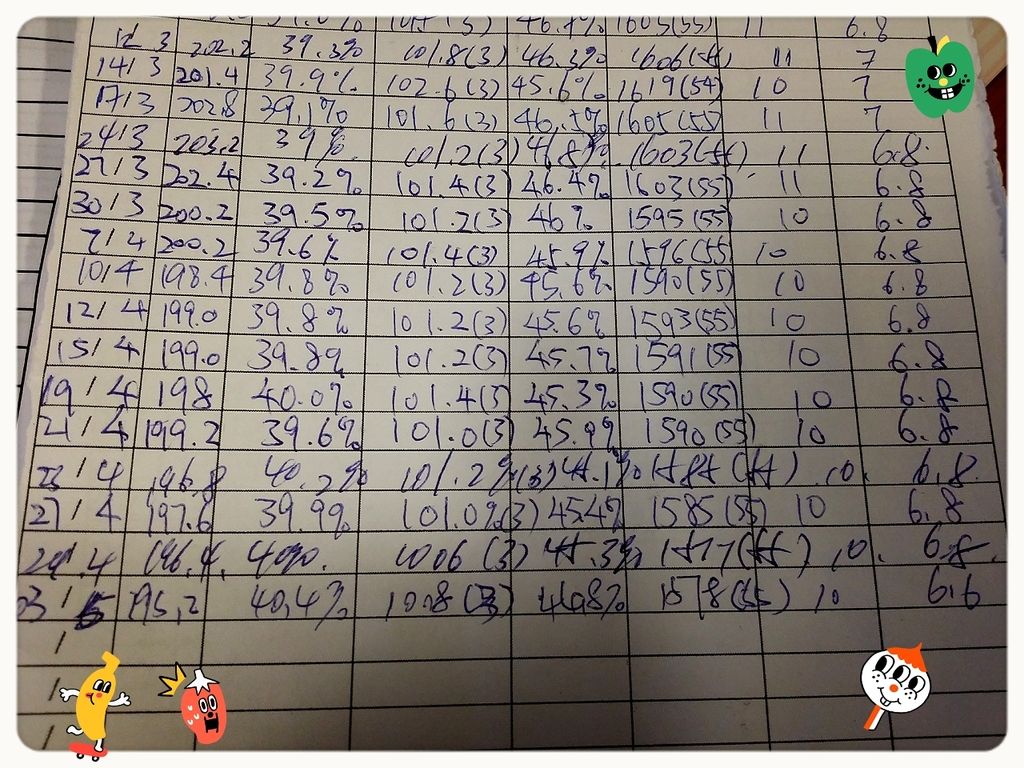 12/3 202.2 39.3% 101.8(3) 46.3% 1606(55) 11 7
14/3 201.4 39.9% 102.6(3) 45.6% 1619(54) 10 7
17/3 202.8 39.1% 101.6(3) 46.5% 1605(55) 11 7
24/3 203.2 39% 101.2(3) 46.8% 1603(55) 11 6.8
27/3 202.4 39.2% 101.4(3) 46.4% 1603(55) 11 6.8
30/3 200.2 39.5% 101.2(3) 46% 1595(55) 10 6.8
7/4 200.2 39.6% 101.4(3) 45.9% 1596(55) 10 6.8
10/4 198.4 39.8% 101.2(3) 45.6% 1590(55) 10 6.8
12/4 199.0 39.8% 101.2(3) 45.6% 1593(55) 10 6.8
15/4 199.0 39.8% 101.2(3) 45.7% 1591(55) 10 6.8
19/4 198 40.0% 101.4(3) 45.3% 1590(55) 10 6.8
21/4 199.2 39.6% 101.0(3) 45.9% 1590(55) 10 6.8
/4 196.8 40.2% 101.2%(3) 10. 6.8
27/4 197.6 39.9% 101.0%(3) 45.4% 1585(55) 10 6.8
196.4 40%. 100.6(3) 10. 6.8.
03/5 195.2 40.4% 100.8(3) 1578(55) 10 6.6